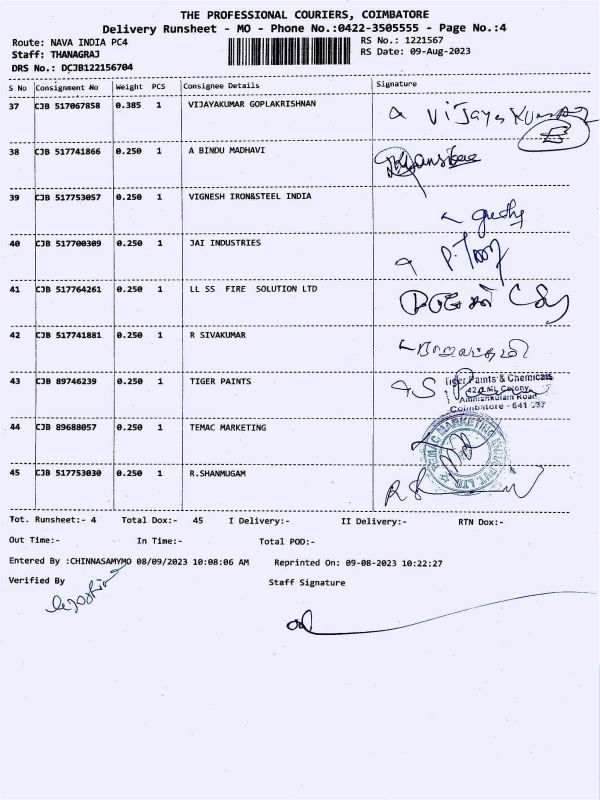 THE PROFESSIONAL COURIERS, COIMBATORE
Delivery Runsheet - MO - Phone No.:0422-3505555 - Page No.:4
Route: NAVA INDIA PC4
RS No.: 1221567
Staff: THANAGRAJ
RS Date: 09-Aug-2023
DRS No.: DCJB122156704
S No Consignment No Weight PCS Consignee Details Signature
37 CJB 517067858 0.385 1 VIJAYAKUMAR GOPLAKRISHNAN
38 CJB 517741866 0.250 1 A BINDU MADHAVI
39 CJB 517753057 0.250 1 VIGNESH IRON&STEEL INDIA
40 CJB 517700309 0.250 1 JAI INDUSTRIES
41 CJB 517764261 0.250 1 LL SS FIRE SOLUTION LTD
42 CJB 517741881 0.250 1 R SIVAKUMAR
43 CJB 89746239 0.250 1 TIGER PAINTS
Tiger Paints & Chemicals
Ammankulam Road
Coimbatore - 641 037
44 CJB 89688057 0.250 1 TEMAC MARKETING
45 CJB 517753030 0.250 1 R.SHANMUGAM
Tot. Runsheet:- 4 Total Dox:- 45 I Delivery:- II Delivery:- RTN Dox:-
Out Time:- In Time:- Total POD:-
Entered By :CHINNASAMYMO 08/09/2023 10:08:06 AM Reprinted On: 09-08-2023 10:22:27
Verified By Staff Signature